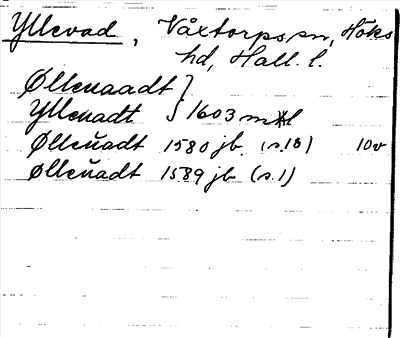 Yllevad, Våxtorps sn, Höks
hd, Hall. l.
Øllenaadt }
Yllenadt } 1603 mtl
Øllenŭadt 1580 jb. (s. 18) 10v
Øllenŭadt 1589 jb (s. 1)